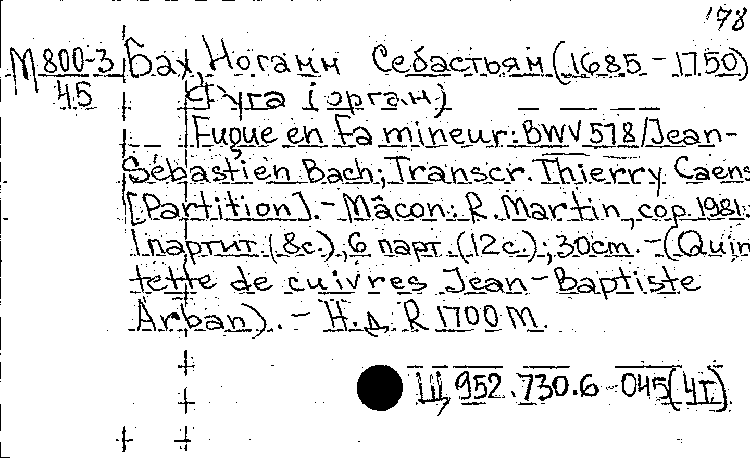 178
М 800-3 Бах, Иоганн Себастьян (1685-1750)
45 Фуга (орган)
Fugue en Fa mineur: BWV 578/Jean-
Sébastien Bach; Transcr. Thierry Caens
[Partition].-Mâcon: R. Martin, cop. 1981.
1партит. (8с.), 6 парт. (12с.); 30cm.-(Quin
tette de cuivres Jean-Baptiste
Arban).- Н.д. R 1700 M.
Ш, 952.730.6-045(4г.)